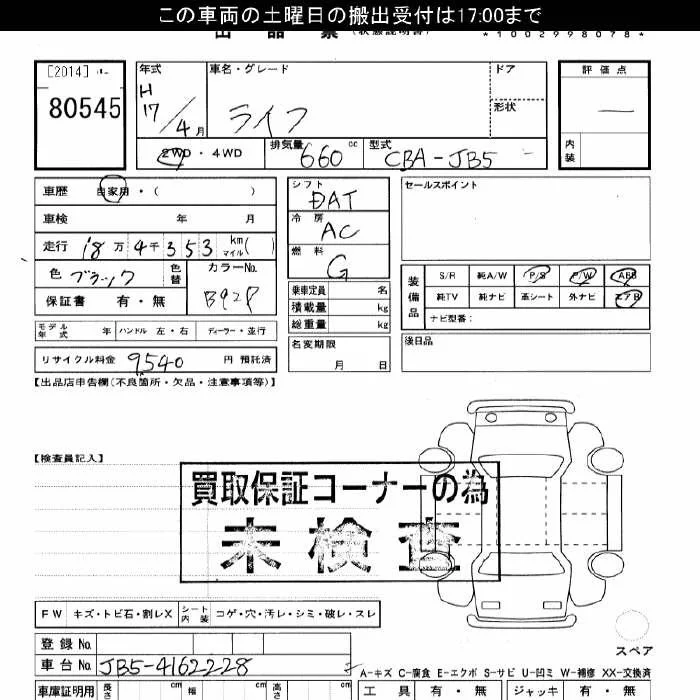 この車両の土曜日の搬出受付は17:00まで
出品票 (状態説明書) *1002998078*
[2014] 年式 車名・グレード ドア 評価点
80545 H17/4月 ライフ 形状 —
2WD・4WD 排気量 660 cc 型式 CBA-JB5 内装
車歴 自家用・( ) シフト DAT セールスポイント
車検 年 月 冷房 AC
走行 18万4千353 km マイル( ) 燃料 G
色 ブラック 色替 カラーNo. B92P 乗車定員 名 装備品 S/R 純A/W P/S P/W ABS
保証書 有・無 積載量 kg 純TV 純ナビ 革シート 外ナビ エアB
総重量 kg ナビ型番:
モデル年式 年 ハンドル 左・右 ディーラー・並行 名変期限 月 日 後日品
リサイクル料金 9540 円 預託済
【出品店申告欄(不良箇所・欠品・注意事項等)】
【検査員記入】
買取保証コーナーの為
未検査
FW キズ・トビ石・割レX シート内装 コゲ・穴・汚レ・シミ・破レ・スレ
スペア
登録No.
車台No. JB5-4162228
A-キズ C-腐食 E-エクボ S-サビ U-凹ミ W-補修 XX-交換済
車庫証明用 長さ cm 幅 cm 高さ cm 工具 有・無 ジャッキ 有・無